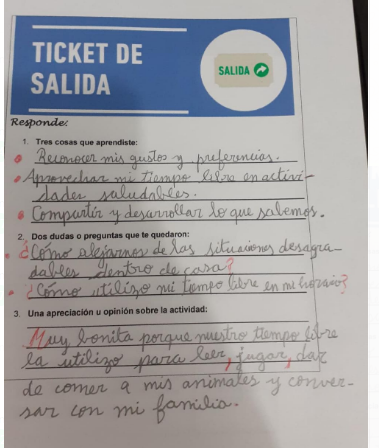 TICKET DE
SALIDA
SALIDA
Responde:
1. Tres cosas que aprendiste:
Reconocer mis gustos y preferencias.
Aprovechar mi tiempo libre en activi-
dades saludables.
Compartir y desarrollar lo que sabemos.
2. Dos dudas o preguntas que te quedaron:
¿Cómo alejarnos de las situaciones desagra-
dables dentro de casa?
¿Cómo utilizo mi tiempo libre en mi horario?
3. Una apreciación u opinión sobre la actividad:
Muy bonita porque nuestro tiempo libre
la utilizo para leer, jugar, dar
de comer a mis animales y conver-
sar con mi familia.